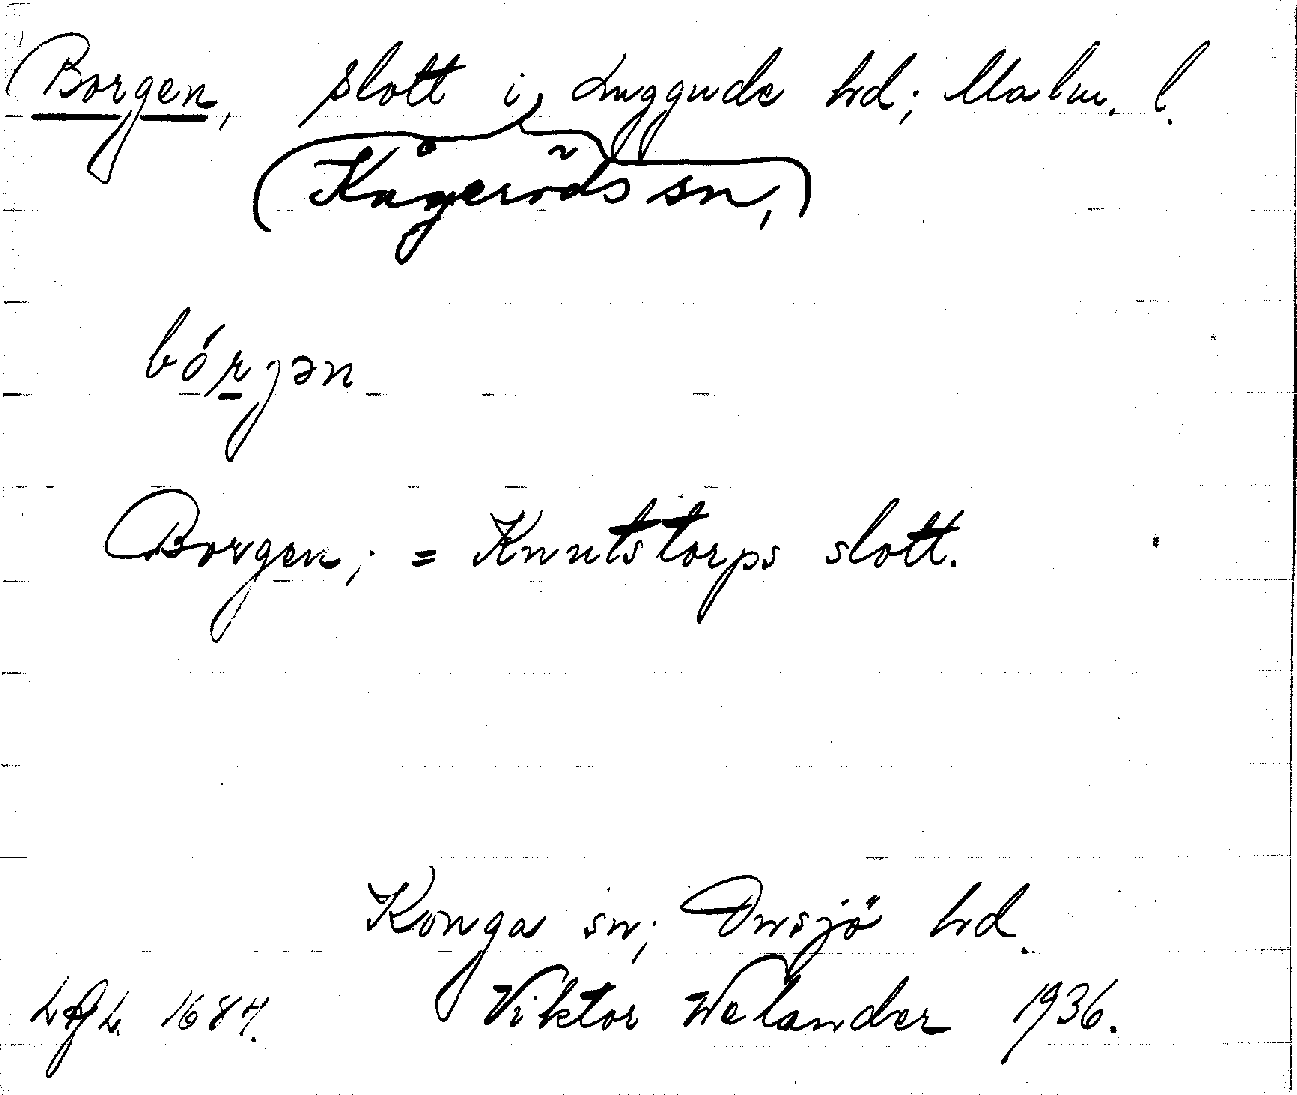 Borgen, slott i, Luggude hd; Malm. l.
(Kågeröds sn,)
bórjən
Borgen; = Knutstorps slott.
Konga sn; Onsjö hd.
1684. Viktor Welander 1936.